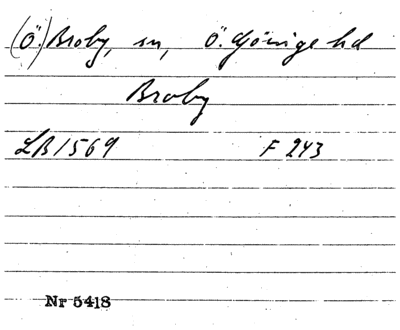 (Ö.) Broby, sn, Ö. Göinge hd
Broby
LB 1569 F 243
Nr 5418